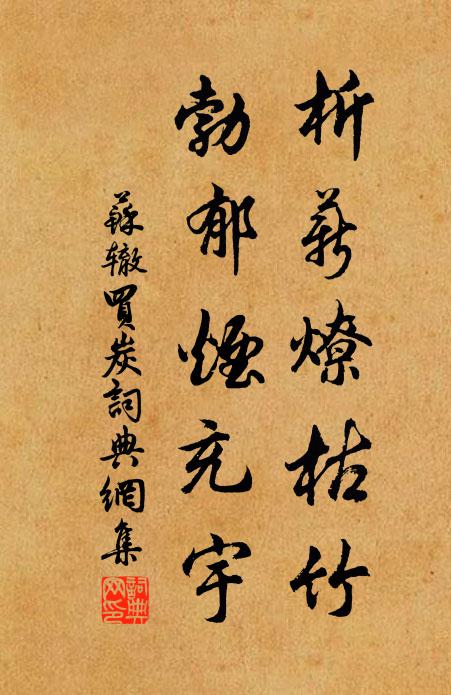 析薪燎枯竹
勃郁煙充宇
蘇辙買炭詞典網集
詞典
网印